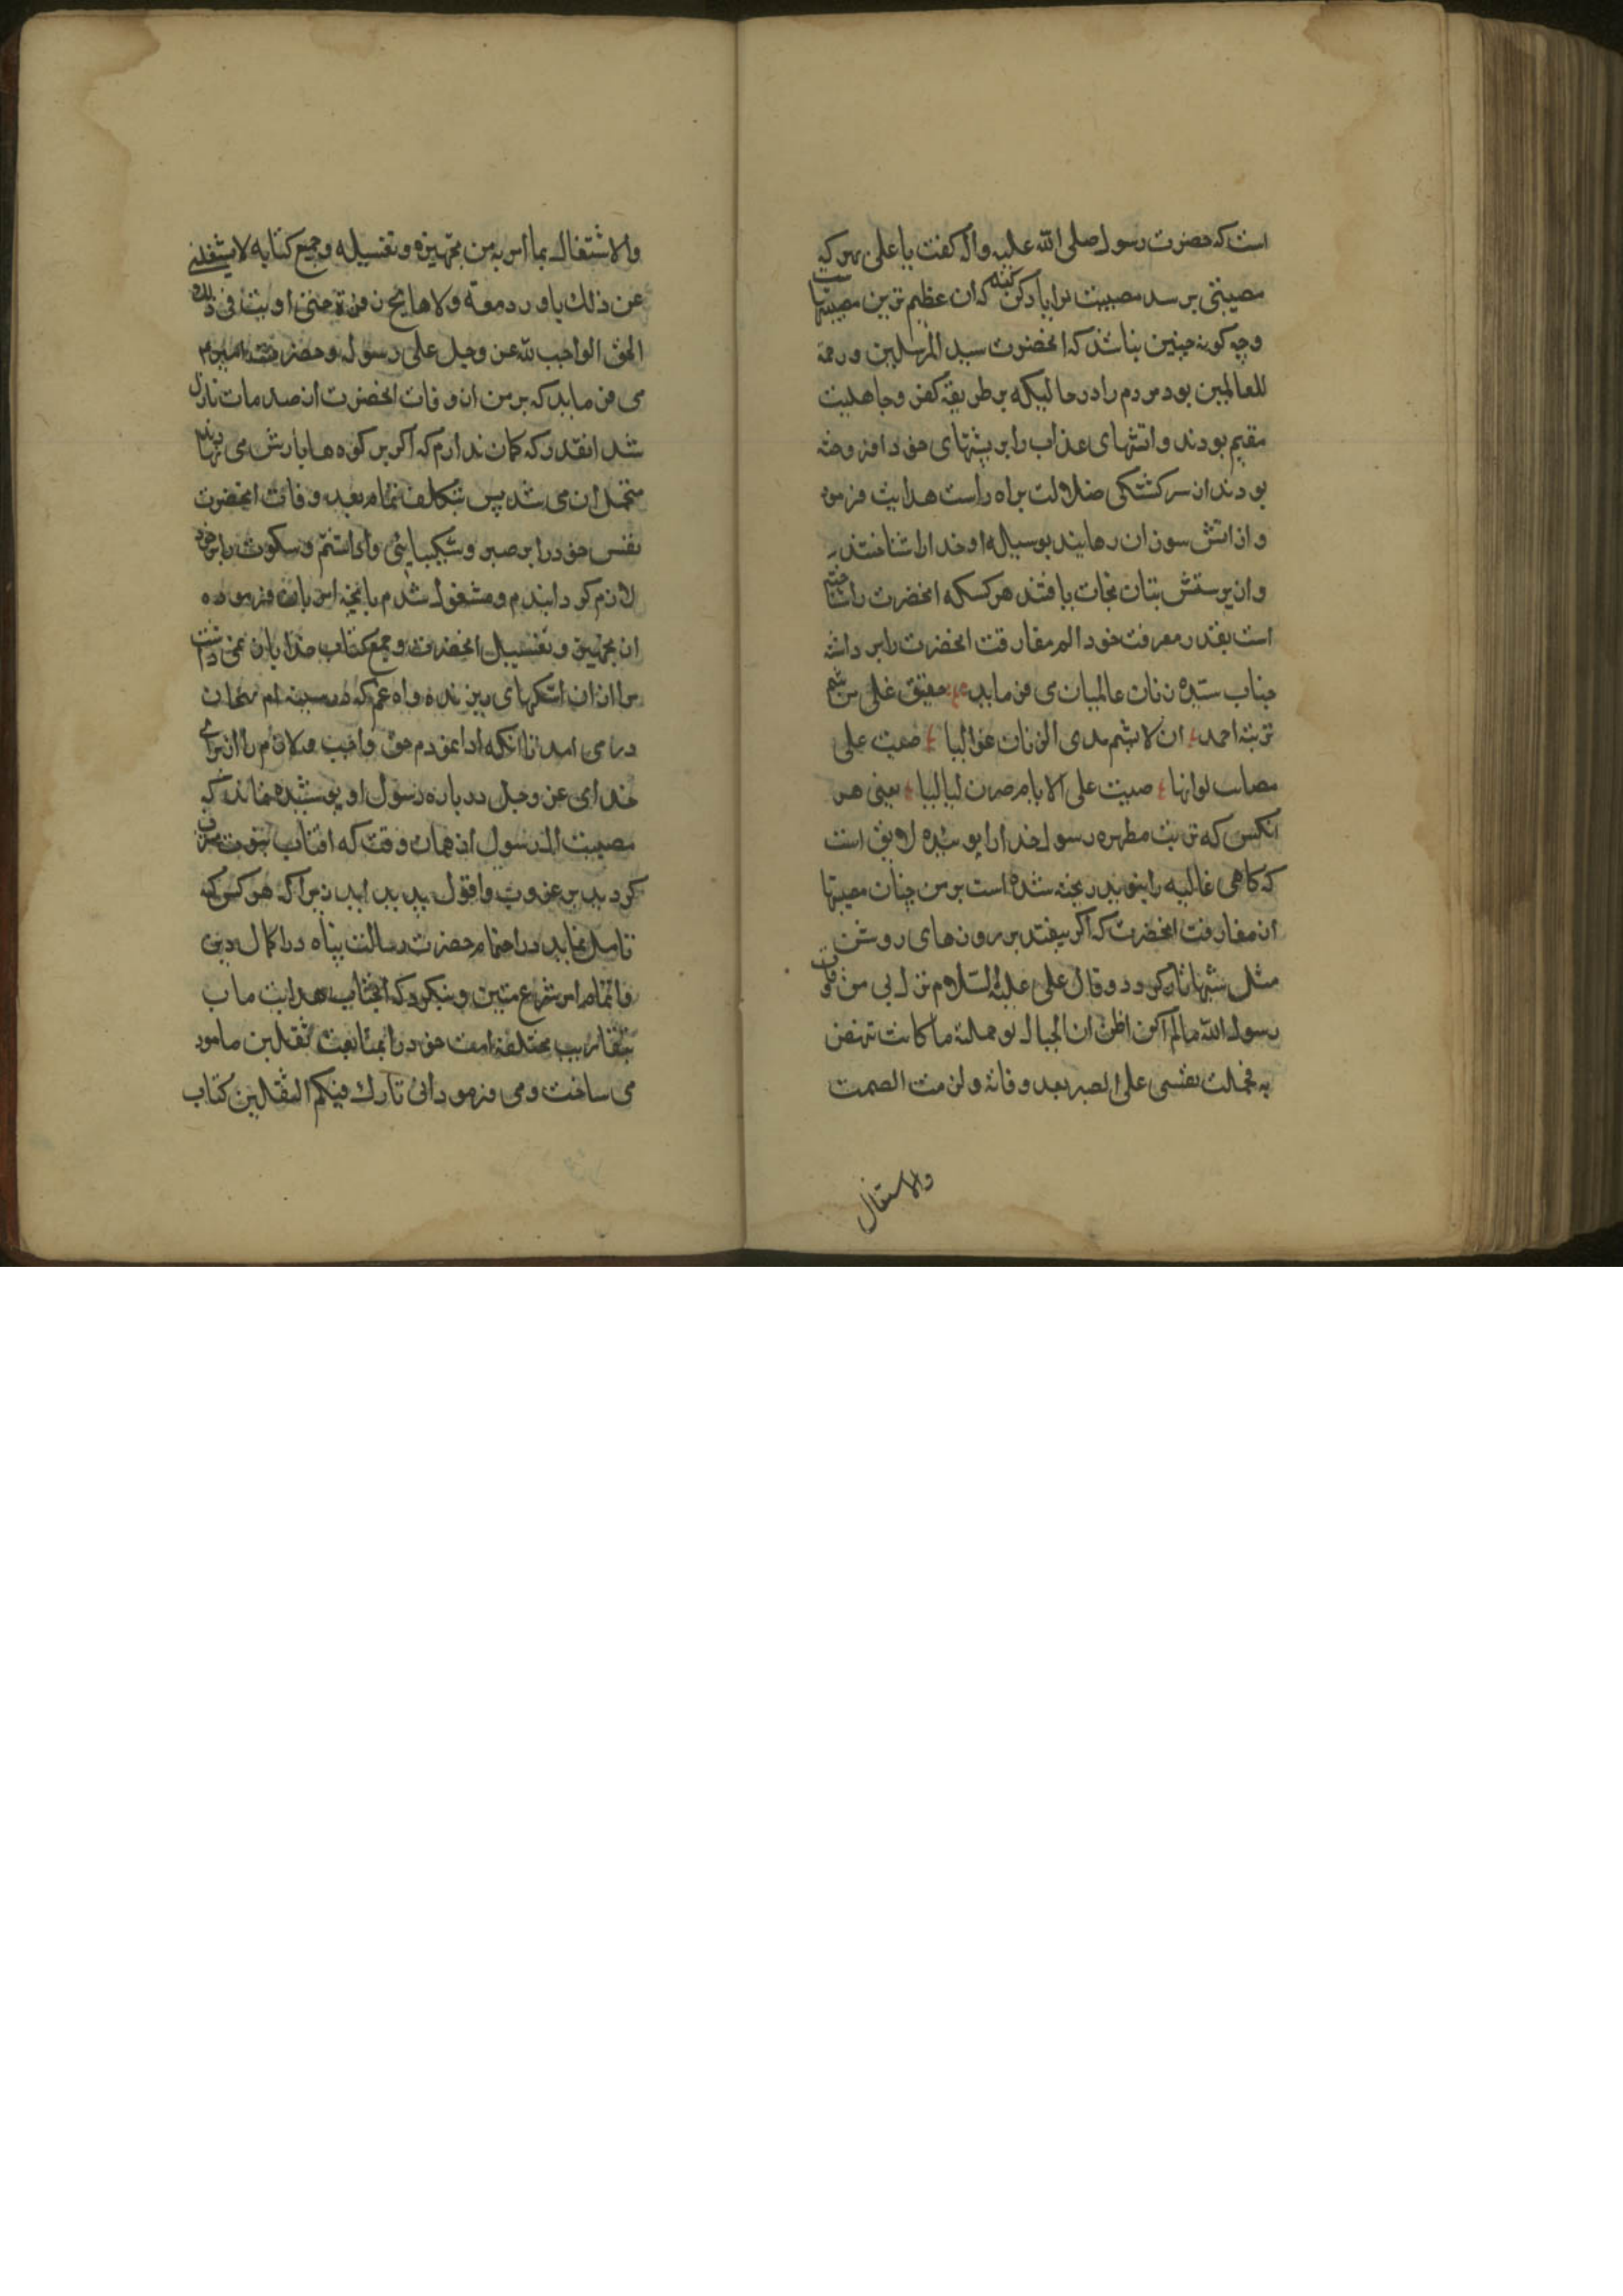 است که حضرت رسول صلی الله علیه واله کفت یا علی بهر که
مصیبتی برسد مصیبت مرا یاد کن که ان عظیم ترین مصیبتها
وچه کونه چنین نباشد که انحضرت سید المرسلین ورحمة
للعالمین بود مردم را در حالیکه بر طریقه کفر وجاهلیت
مقیم بودند واتشهای عذاب را بر پشتهای خود افروخته
بودند از سرکشتکی ضلالت براه راست هدایت فرمود
واز اتش سوزان رهانید بوسیله او خدا را شناختند
واز پرستش بتان نجات یافتند هر کسکه انحضرت را شناخته
است بقدر معرفت خود الم مفارقت انحضرت را برداشته
جناب سیده زنان عالمیان می فرماید حقیق علی من شم
تربة احمد ان لا یشم مدی الزمان غوالیا صبت علی
مصائب لو انها صبت علی الایام صرن لیالیا یعنی هر
انکس که تربت مطهره رسول خدا را بوئیده لایق است
که کاهی غالیه را نبوید ریخته شده است بر من چنان مصیبتها
از مفارقت انحضرت که اکر بیفتد بر روزهای روشن
مثل شبها تار کردد وقال علی علیه السلام نزل بی من وفات
رسول الله ما لم اکن اظن ان الجبال لو حملته ما کانت تنهض
به فحملت نفسی علی الصبر بعد وفاته ولزمت الصمت
والاشتغال
والاشتغال بما امر به من تجهیزه وتغسیله وجمع کتابه لا یشغلنی
عن ذلک بادر دمعة ولا هایج زفرة حتی ادیت فی ذلک
الحق الواجب لله عز وجل علی رسوله وحضرت امیر
می فرماید که بر من از وفات انحضرت ان صدمات نازل
شد انقدر که کمان ندارم که اکر بر کوه ها بارش می
متحمل ان می شد پس بتکلف تمام بعد وفات انحضرت
نفس خود را بر صبر وشکیبایی وا داشتم وسکوت را بر خود
لازم کردانیدم ومشغول شدم بانچه امر بان فرموده
از تجهیز وتغسیل انحضرت وجمع کتاب خدا باز نمی داشت
مرا از ان اشکهای ریزنده واه غم که در سینه ام
در می امد تا انکه ادا نمودم حق واجب ولازم را از برای
خدای عز وجل در باره رسول او پوشیده نماند که
مصیبت ال رسول از همان وقت که افتاب نبوت
کردید بر غروب وافول پدید امد زیرا که هر کس که
تامل نماید در اهتمام حضرت رسالت پناه در اکمال دین
واتمام امر شرع متین وبنکرد که انجناب هدایت ماب
بتقاریب مختلفه امت خود را بمتابعت ثقلین مامور
می ساخت ومی فرمود انی تارک فیکم الثقلین کتاب